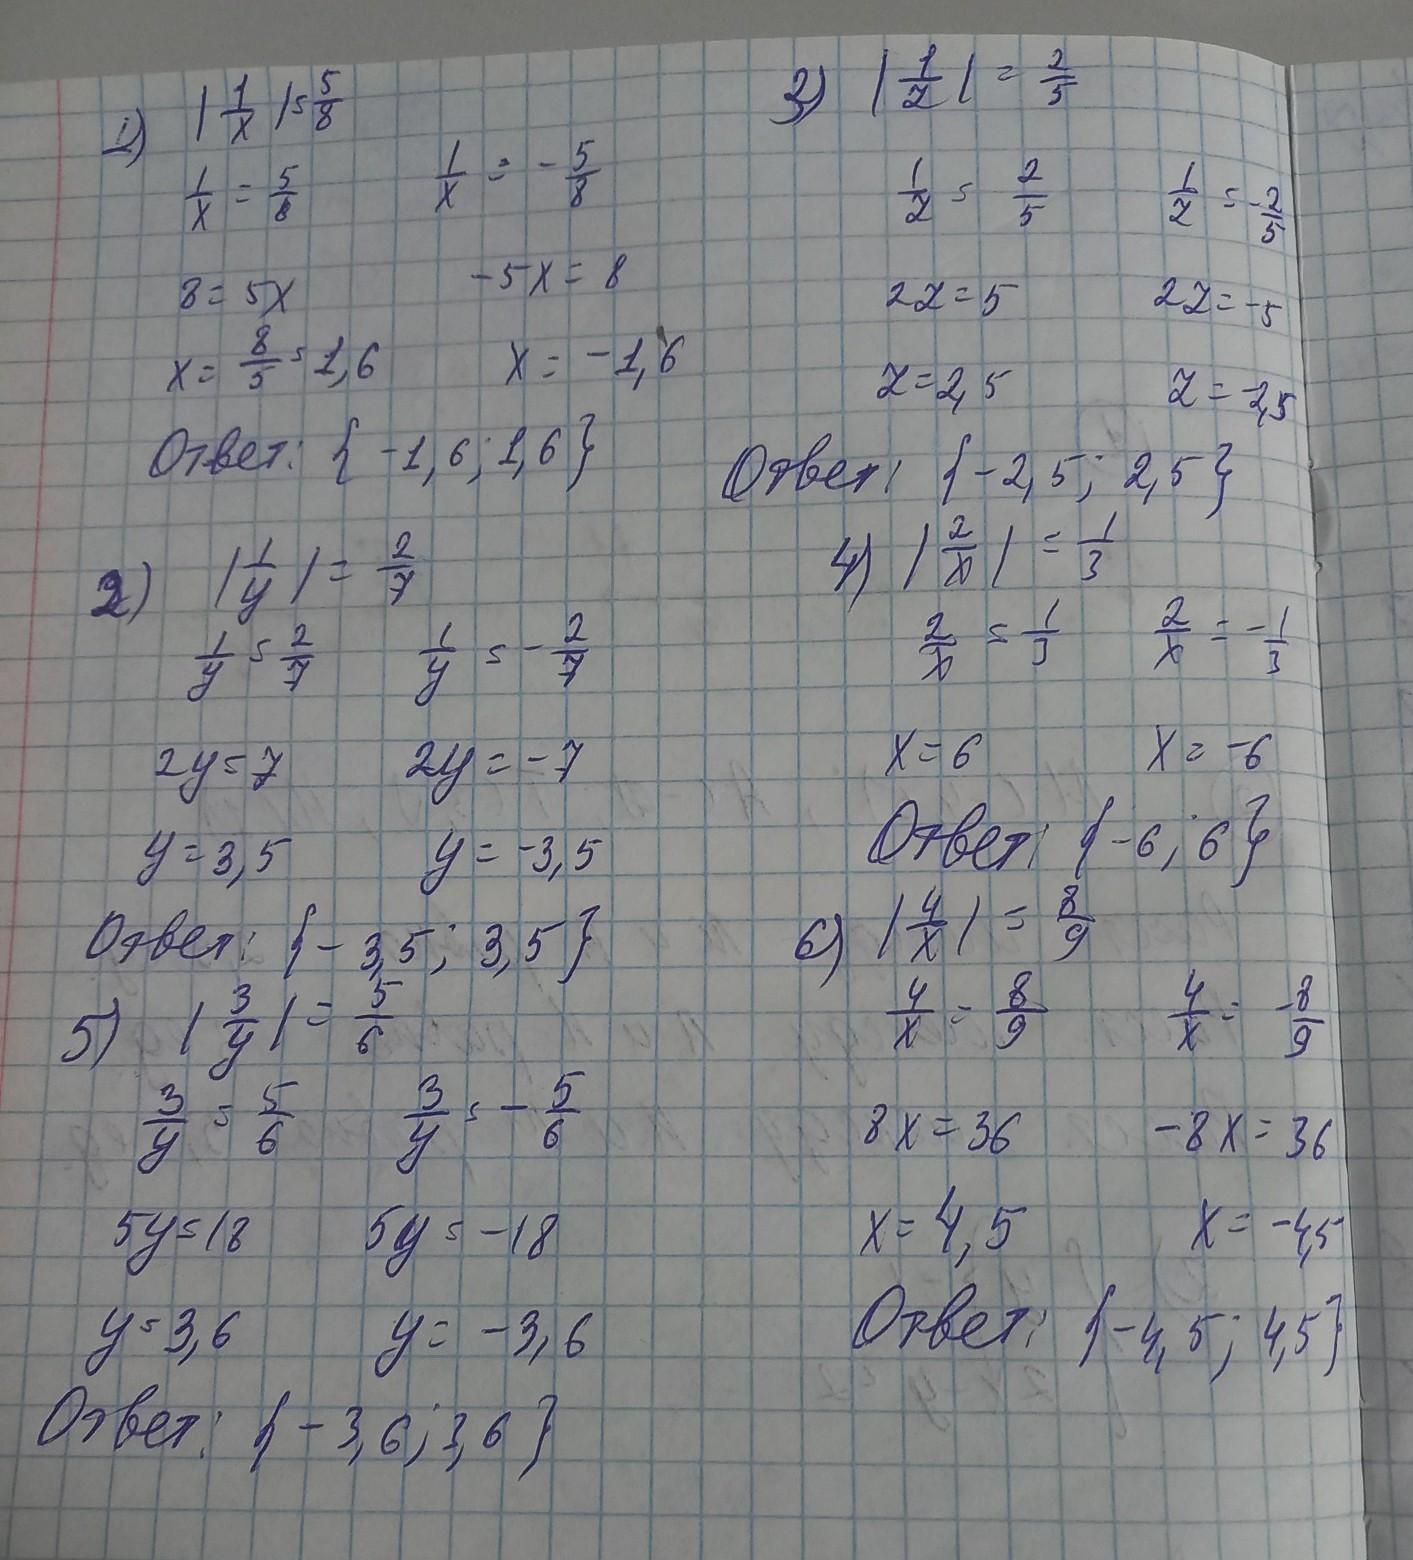 1) |1/x| = 5/8
1/x = 5/8    1/x = -5/8
8 = 5x    -5x = 8
x = 8/5 = 1,6    x = -1,6
Ответ: {-1,6; 1,6}
2) |1/y| = 2/7
1/y = 2/7    1/y = -2/7
2y = 7    2y = -7
y = 3,5    y = -3,5
Ответ: {-3,5; 3,5}
5) |3/y| = 5/6
3/y = 5/6    3/y = -5/6
5y = 18    5y = -18
y = 3,6    y = -3,6
Ответ: {-3,6; 3,6}
3) |1/z| = 2/5
1/z = 2/5    1/z = -2/5
2z = 5    2z = -5
z = 2,5    z = -2,5
Ответ: {-2,5; 2,5}
4) |2/x| = 1/3
2/x = 1/3    2/x = -1/3
x = 6    x = -6
Ответ: {-6; 6}
6) |4/x| = 8/9
4/x = 8/9    4/x = -8/9
8x = 36    -8x = 36
x = 4,5    x = -4,5
Ответ: {-4,5; 4,5}